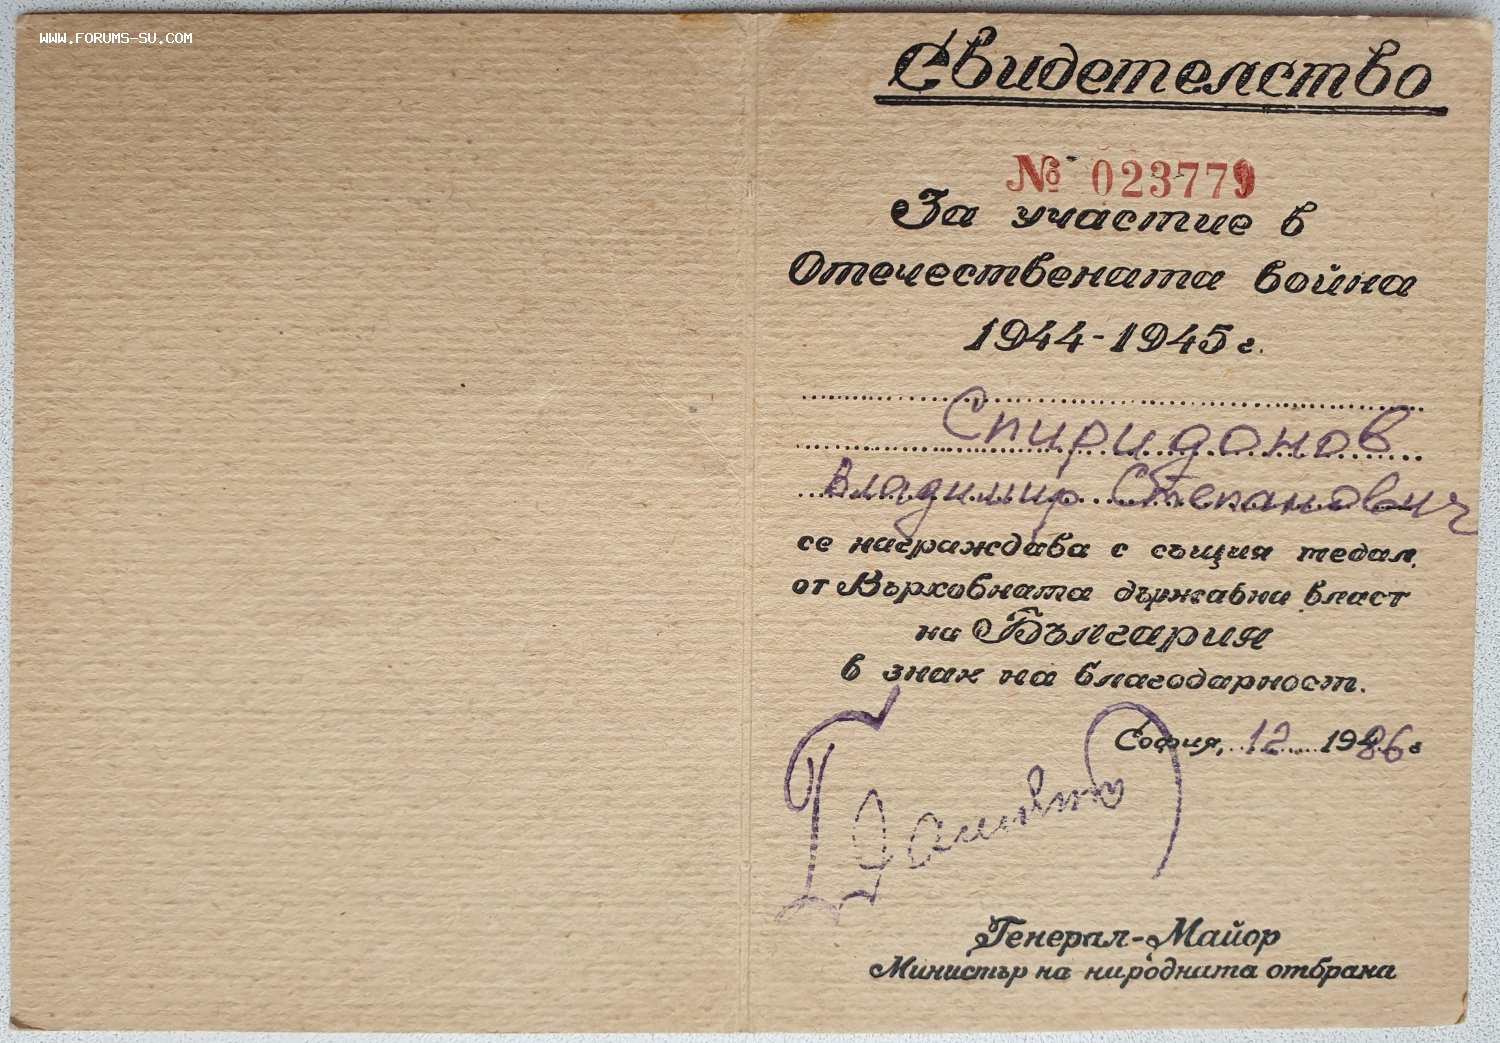 WWW.FORUMS-SU.COM
Свидетелство
№ 023779
За участие в
Отечествената война
1944-1945 г.
Спиридонов
Владимир Степанович
се награждава с същия медал,
от Върховната държавна власт
на България
в знак на благодарност.
София, 12 1986 г
Генерал-Майор
Министър на народната отбрана